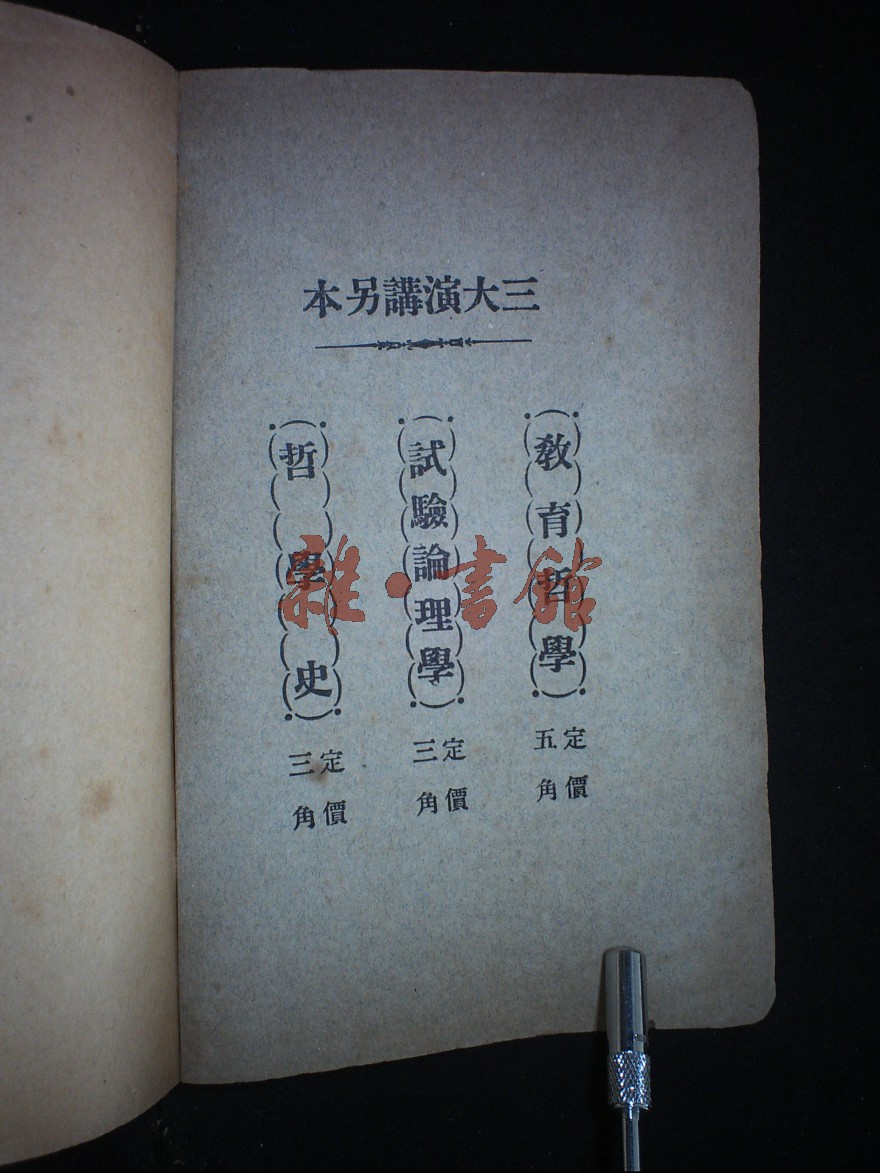 三大演講另本
教育哲學
定價
五角
試驗論理學
定價
三角
哲學史
定價
三角
雜·書館